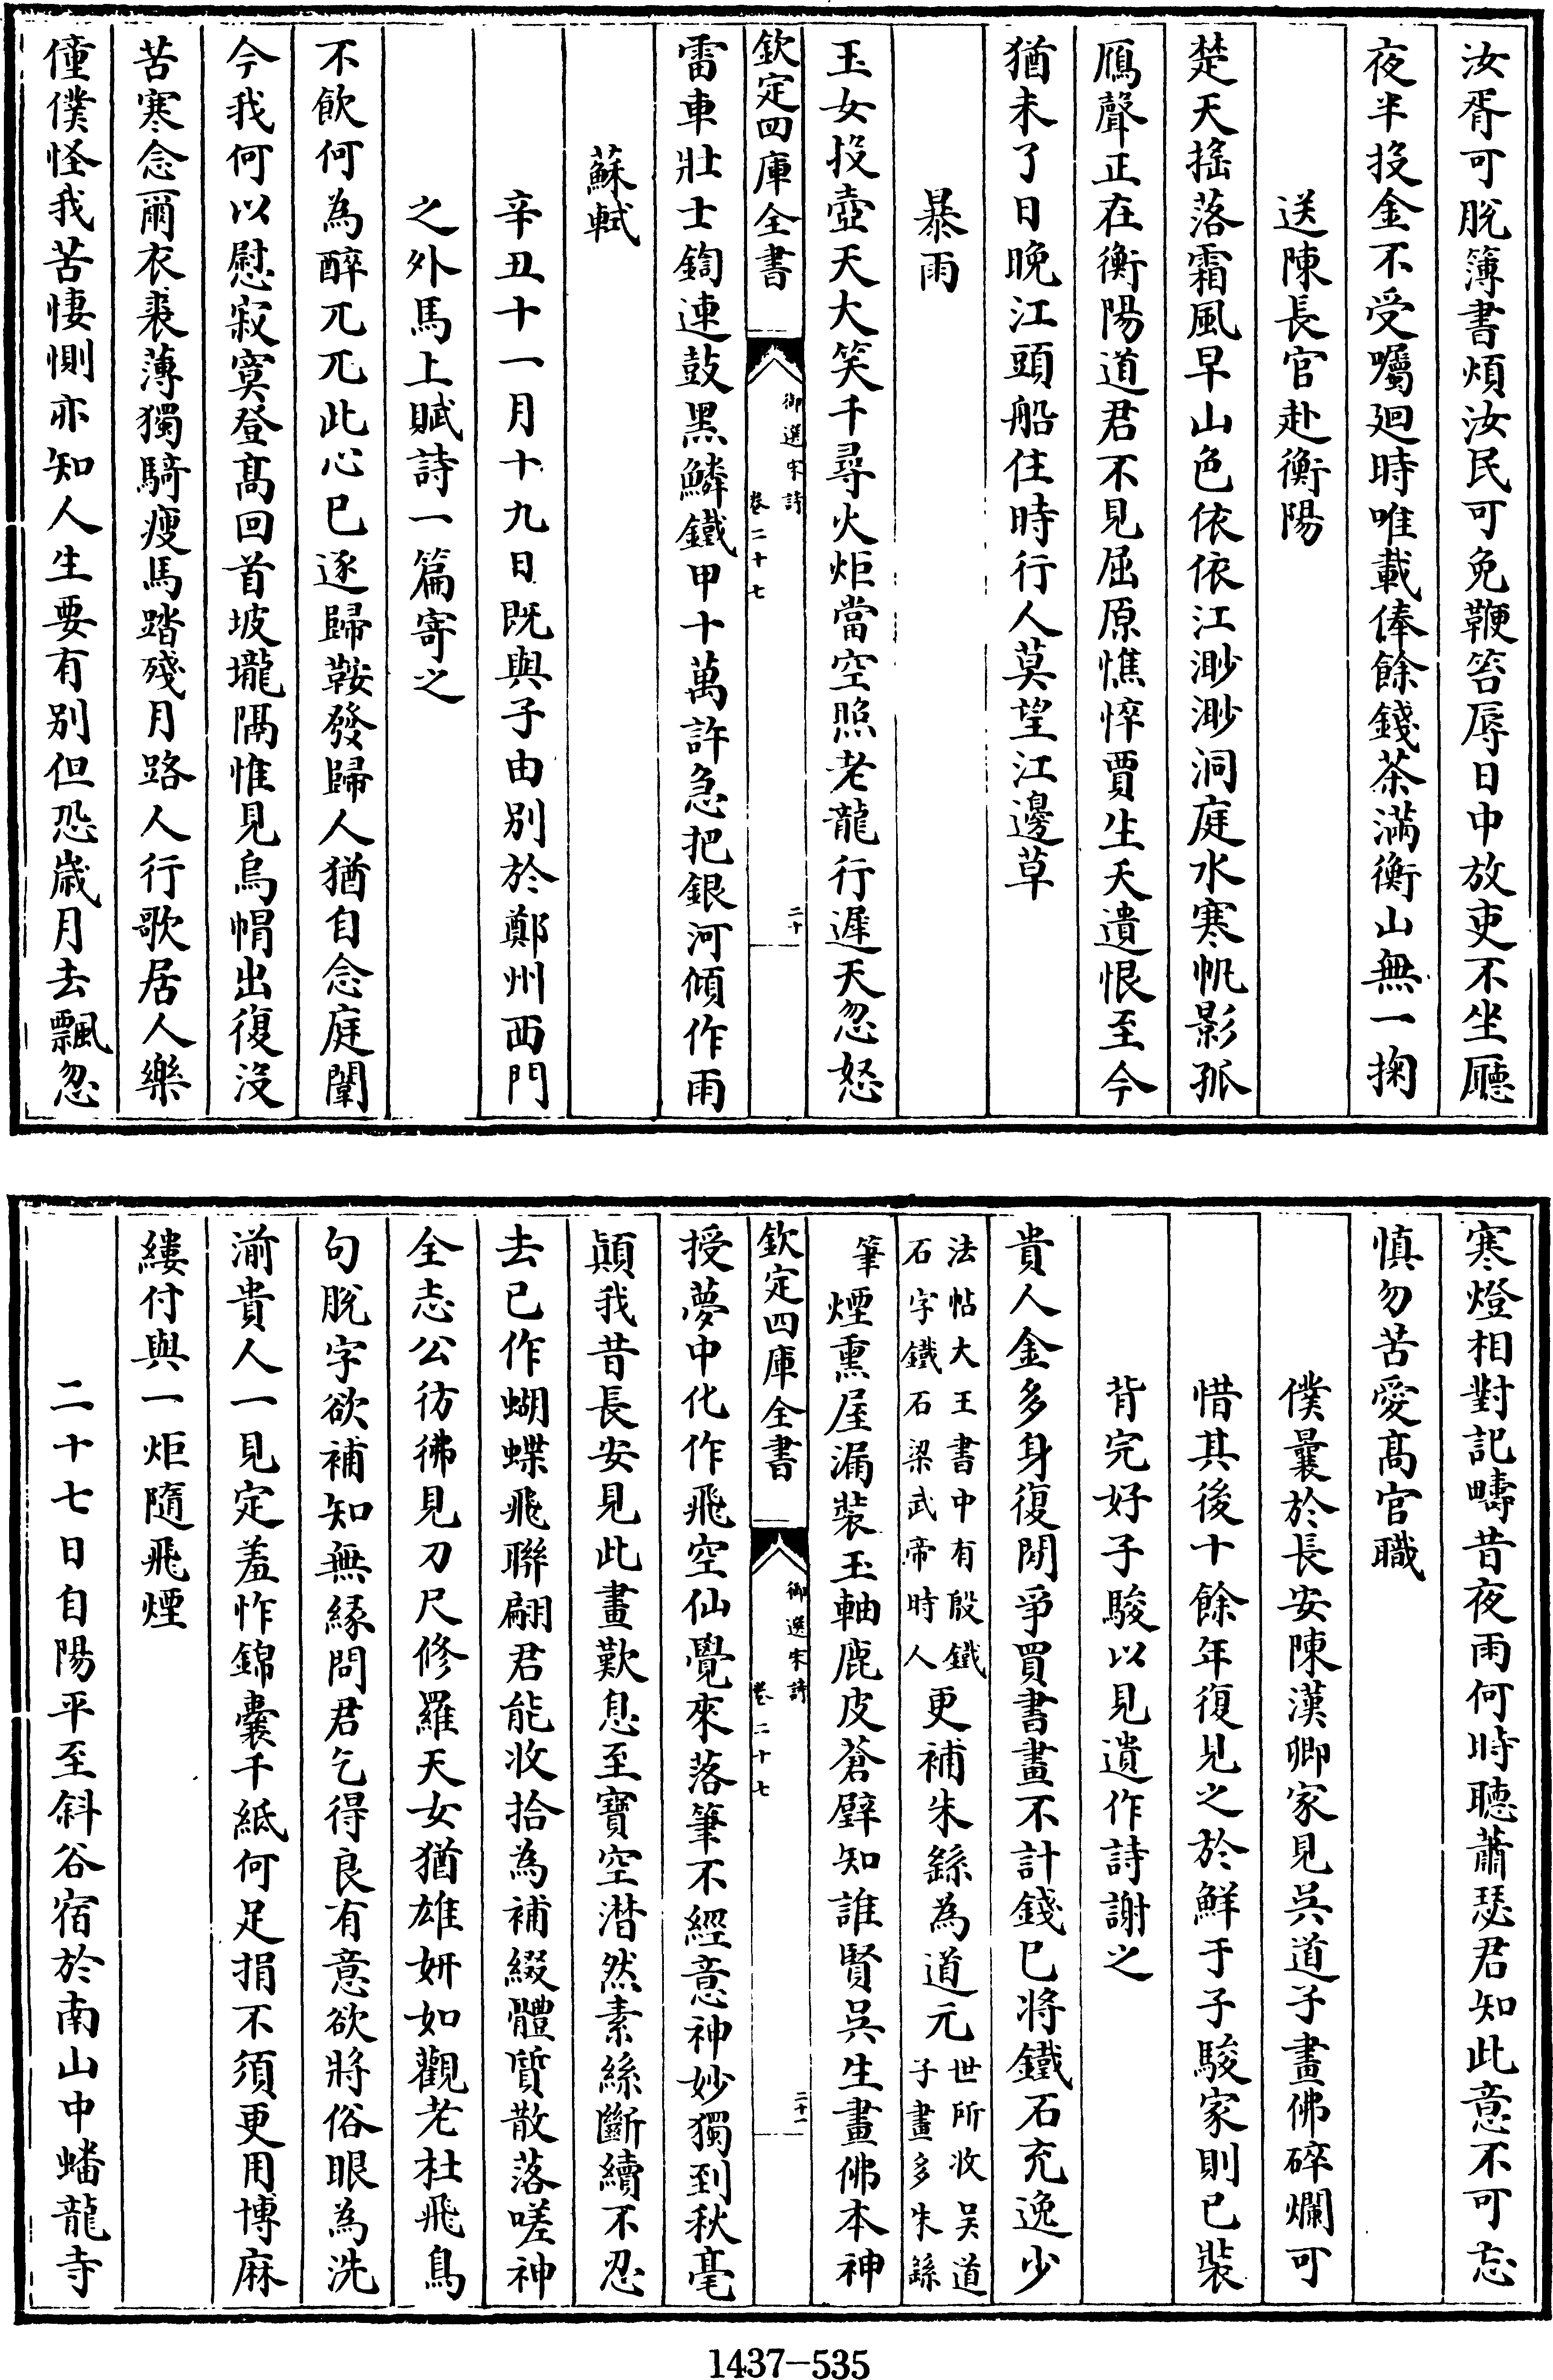 汝胥可脫簿書煩汝民可免鞭笞辱日中放吏不坐廳
夜半投金不受囑廻時唯載俸餘錢茶滿衡山無一掬
送陳長官赴衡陽
楚天搖落霜風早山色依依江渺渺洞庭水寒帆影孤
鴈聲正在衡陽道君不見屈原憔悴賈生夭遺恨至今
猶未了日晚江頭船住時行人莫望江邊草
暴雨
玉女投壺天大笑千尋火炬當空照老龍行遲天忽怒
欽定四庫全書
御選宋詩
卷二十七
二十
雷車壯士鍧連鼓黑鱗鐵甲十萬許急把銀河傾作雨
蘇軾
辛丑十一月十九日既與子由別於鄭州西門
之外馬上賦詩一篇寄之
不飲何為醉兀兀此心已逐歸鞍發歸人猶自念庭闈
今我何以慰寂寞登髙回首坡壠隔惟見烏帽出復沒
苦寒念爾衣裘薄獨騎瘦馬踏殘月路人行歌居人樂
僮僕怪我苦悽惻亦知人生要有別但恐歲月去飄忽
寒燈相對記疇昔夜雨何時聽蕭瑟君知此意不可忘
慎勿苦愛髙官職
僕曩於長安陳漢卿家見吳道子畫佛碎爛可
惜其後十餘年復見之於鮮于子駿家則已裝
背完好子駿以見遺作詩謝之
貴人金多身復閒爭買書畫不計錢已將鐵石充逸少
法帖大王書中有殷鐵
石字鐵石梁武帝時人
更補朱繇為道元
世所收吳道
子畫多朱繇
筆
煙熏屋漏裝玉軸鹿皮蒼璧知誰賢吳生畫佛本神
欽定四庫全書
御選宋詩
卷二十七
二十一
授夢中化作飛空仙覺來落筆不經意神妙獨到秋毫
顚我昔長安見此畫歎息至寶空潸然素絲斷續不忍
去已作蝴蝶飛聯翩君能收拾為補綴體質散落嗟神
全志公彷彿見刀尺修羅天女猶雄妍如觀老杜飛鳥
句脫字欲補知無緣問君乞得良有意欲將俗眼為洗
湔貴人一見定羞怍錦囊千紙何足捐不須更用博麻
縷付與一炬隨飛煙
二十七日自陽平至斜谷宿於南山中蟠龍寺
1437-535